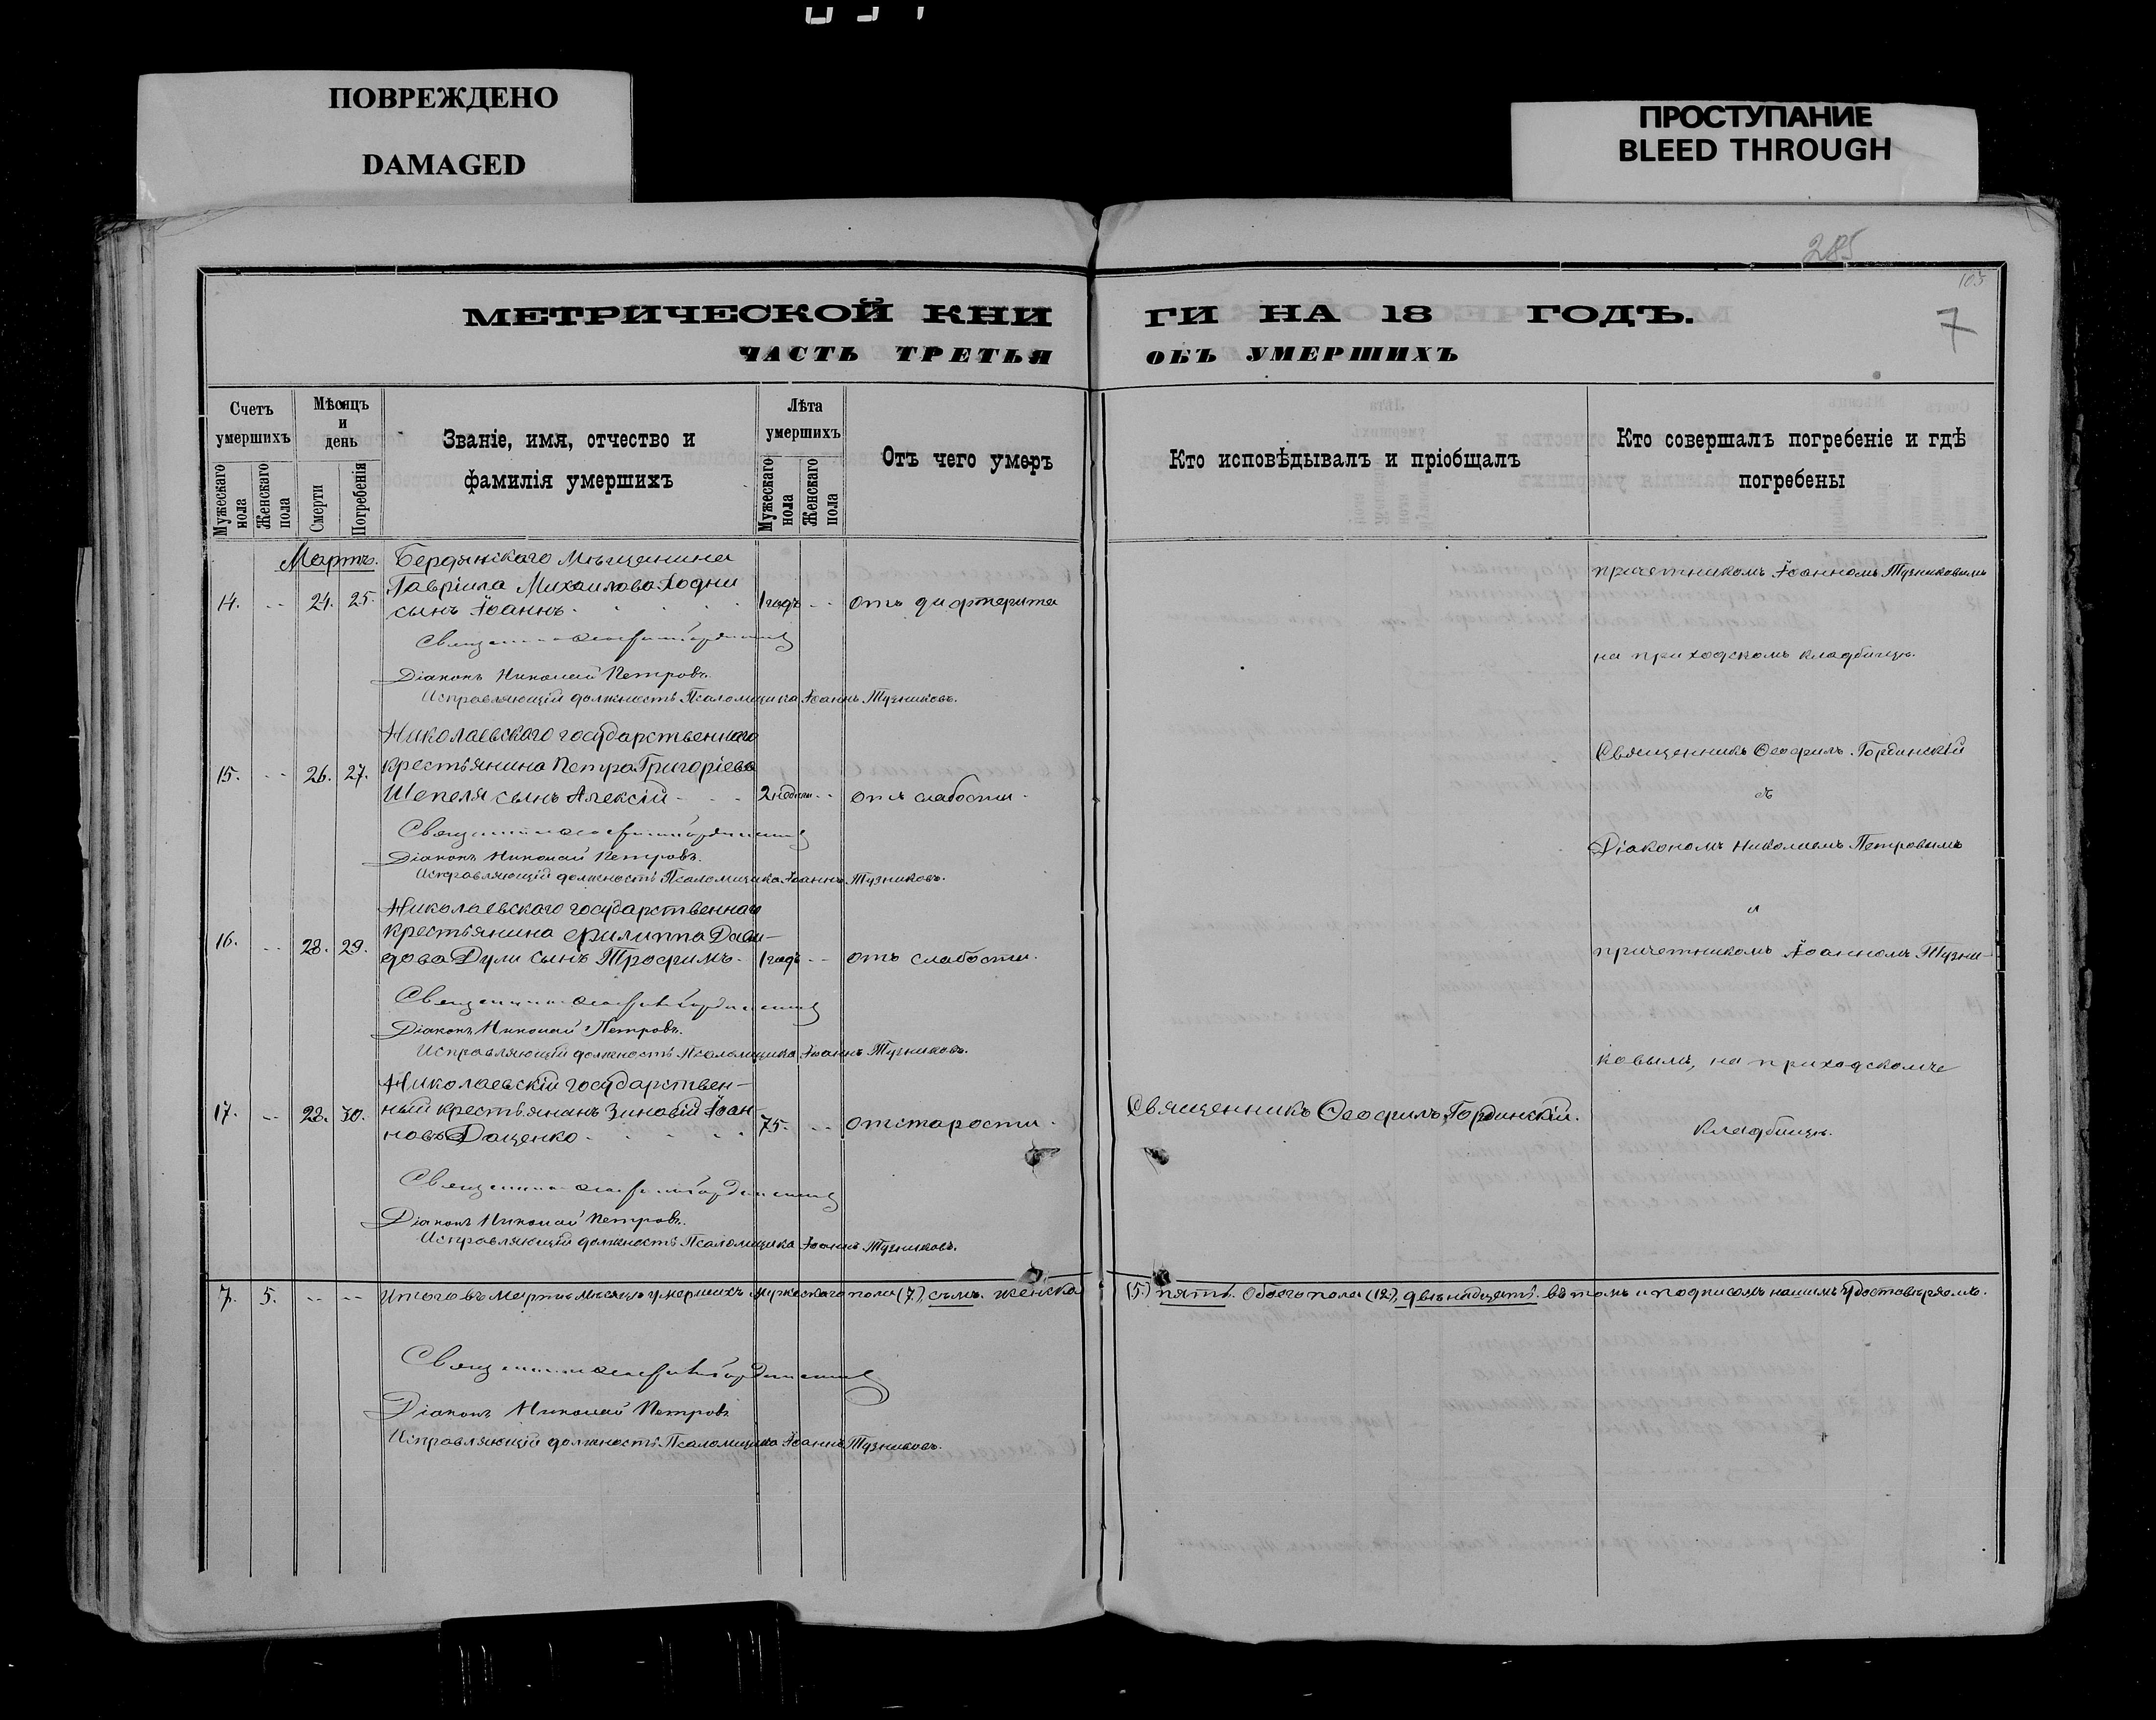 ПОВРЕЖДЕНО
DAMAGED
ПРОСТУПАНИЕ
BLEED THROUGH
285
103
7
МЕТРИЧЕСКОЙ КНИ
ГИ НА 18 ГОДЪ.
ЧАСТЬ ТРЕТЬЯ
ОБЪ УМЕРШИХЪ
Счетъ умершихъ
Мужескаго пола
Женскаго пола
Мѣсяцъ и день
Смерти
Погребенія
Званіе, имя, отчество и
фамилія умершихъ
Лѣта умершихъ
Мужескаго пола
Женскаго пола
Отъ чего умеръ
Кто исповѣдывалъ и пріобщалъ
Кто совершалъ погребеніе и гдѣ
погребены
Мартъ. Бердянскаго мѣщанина
Гавріила Михаилова Ходни
14. -- 24. 25. сынъ Іоаннъ 1 годъ -- отъ дифтерита
причетникомъ Іоанномъ Тузниковымъ
на приходскомъ кладбищѣ.
Священникъ Ѳеофилъ Гординскій
Діаконъ Николай Петровъ.
Исправляющій должность Псаломщика Іоаннъ Тузниковъ.
Николаевскаго государственнаго
15. -- 26. 27. крестьянина Петра Григоріева
Шепеля сынъ Алексій 2 недѣли -- отъ слабости.
Священникъ Ѳеофилъ Гординскій
съ
Священникъ Ѳеофилъ Гординскій
Діаконъ Николай Петровъ.
Исправляющій должность Псаломщика Іоаннъ Тузниковъ.
Діакономъ Николаемъ Петровымъ
и
Николаевскаго государственнаго
16. -- 28. 29. крестьянина Филиппа Дави-
дова Дули сынъ Трофимъ 1 годъ -- отъ слабости.
причетникомъ Іоанномъ Тузни-
Священникъ Ѳеофилъ Гординскій
Діаконъ Николай Петровъ.
Исправляющій должность Псаломщика Іоаннъ Тузниковъ.
ковымъ, на приходскомъ
Николаевскій государствен-
17. -- 28. 30. ный крестьянинъ Зиновій Іоан-
новъ Даценко 75. -- отъ старости.
Священникъ Ѳеофилъ Гординскій.
кладбищѣ.
Священникъ Ѳеофилъ Гординскій
Діаконъ Николай Петровъ.
Исправляющій должность Псаломщика Іоаннъ Тузниковъ.
7. 5. -- -- Итого въ Мартѣ мѣсяцѣ умершихъ мужескаго пола (7) семь. женска (5.) пять. Обоего пола (12), двѣнадцать. въ томъ и подписомъ нашимъ удостовѣряемъ.
Священникъ Ѳеофилъ Гординскій
Діаконъ Николай Петровъ
Исправляющій должность Псаломщика Іоаннъ Тузниковъ.